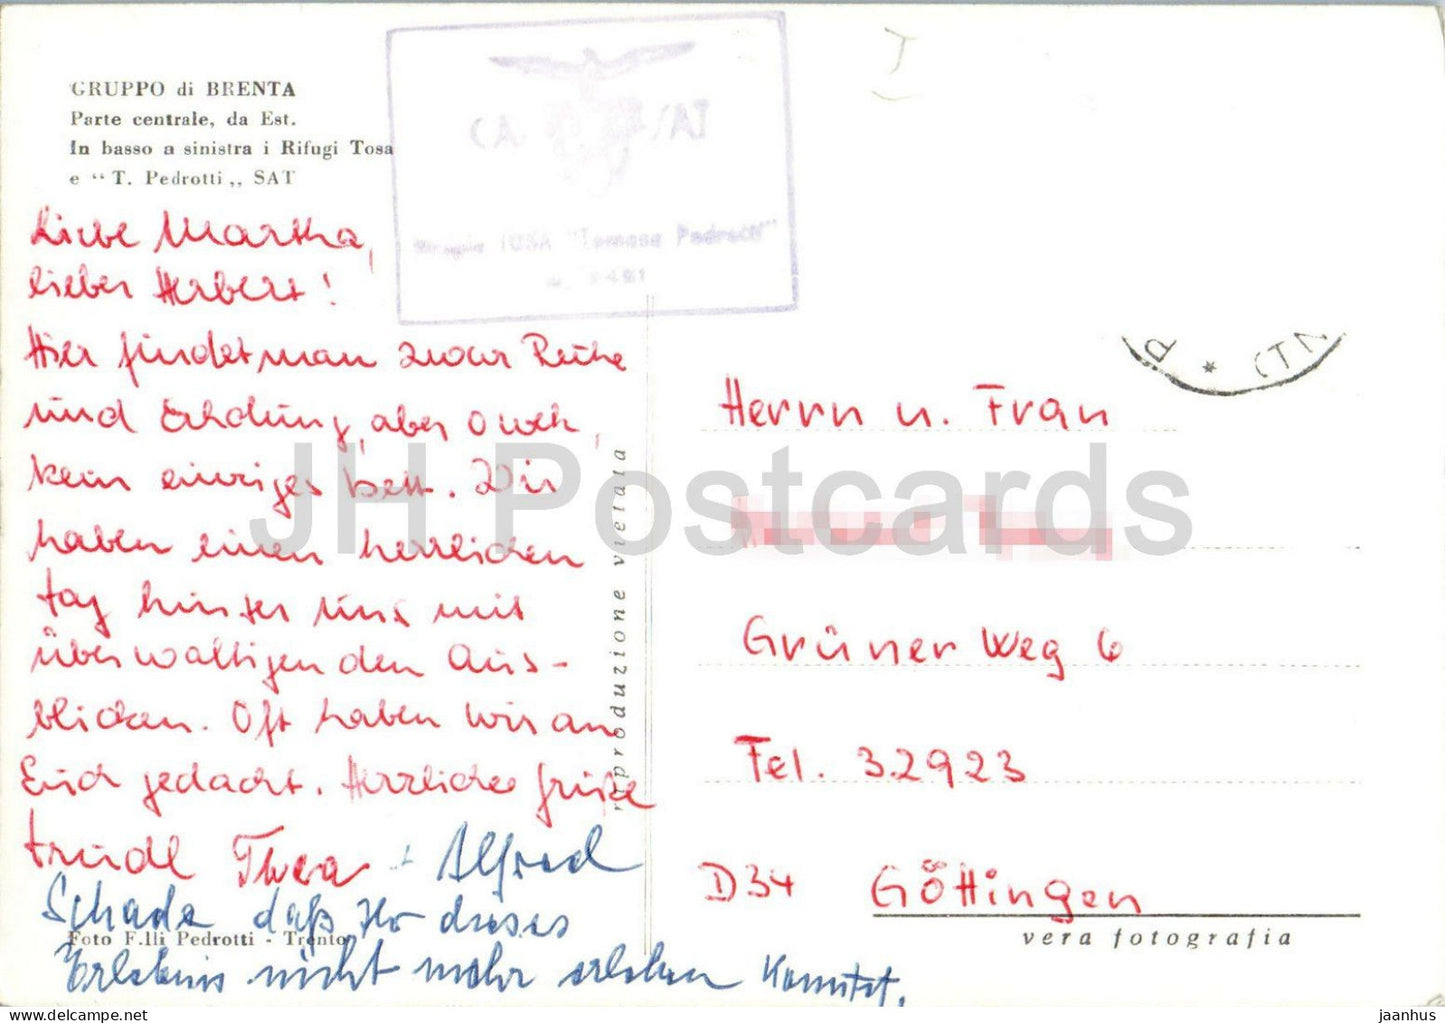 GRUPPO di BRENTA
Parte centrale, da Est.
In basso a sinistra i Rifugi Tosa
e “ T. Pedrotti „ SAT
CA /AI
TOSA "Tomaso Pedrotti"
Liebe Martha,
lieber Herbert!
Hier findet man zwar Ruhe
und Erholung, aber o weh,
kein einziges Bett. Wir
haben einen herrlichen
Tag hinter uns mit
überwältigenden Aus-
blicken. Oft haben wir an
Euch gedacht. Herzliche Grüße
Trudl Thea + Alfred
Schade daß Ihr dieses
Erlebnis nicht mehr erleben konntet.
Foto F.lli Pedrotti - Trento
riproduzione vietata
Herrn u. Frau
Grüner Weg 6
Tel. 32923
D34 Göttingen
vera fotografia
JH Postcards
jaanhus